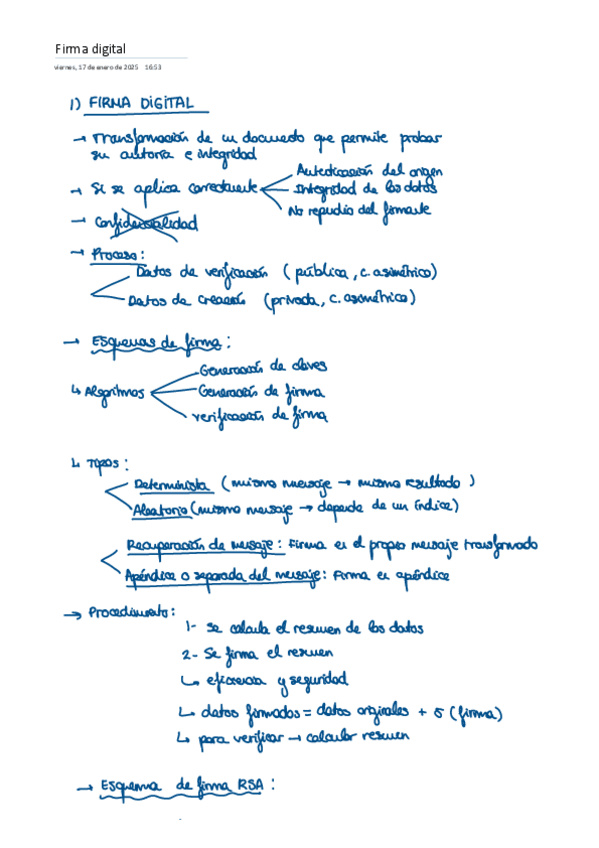 Firma digital
viernes, 17 de enero de 2025 16:53
1) FIRMA DIGITAL
→ Transformación de un documento que permite probar
su autoría e integridad
→ Si se aplica correctamente
Autenticación del origen
Integridad de los datos
No repudio del firmante
→ Confidencialidad
→ Proceso:
Datos de verificación (pública, c. asimétrico)
Datos de creación (privada, c. asimétrico)
→ Esquemas de firma:
↳ Algoritmos
Generación de claves
Generación de firma
verificación de firma
↳ Tipos:
Determinista (mismo mensaje → mismo resultado)
Aleatorio (mismo mensaje → depende de un índice)
Recuperación de mensaje: Firma es el propio mensaje transformado
Apéndice o separada del mensaje: Firma es apéndice
→ Procedimiento:
1- se calcula el resumen de los datos
2- Se firma el resumen
↳ eficiencia y seguridad
↳ datos firmados = datos originales + S (firma)
↳ para verificar → calcular resumen
→ Esquema de firma RSA: